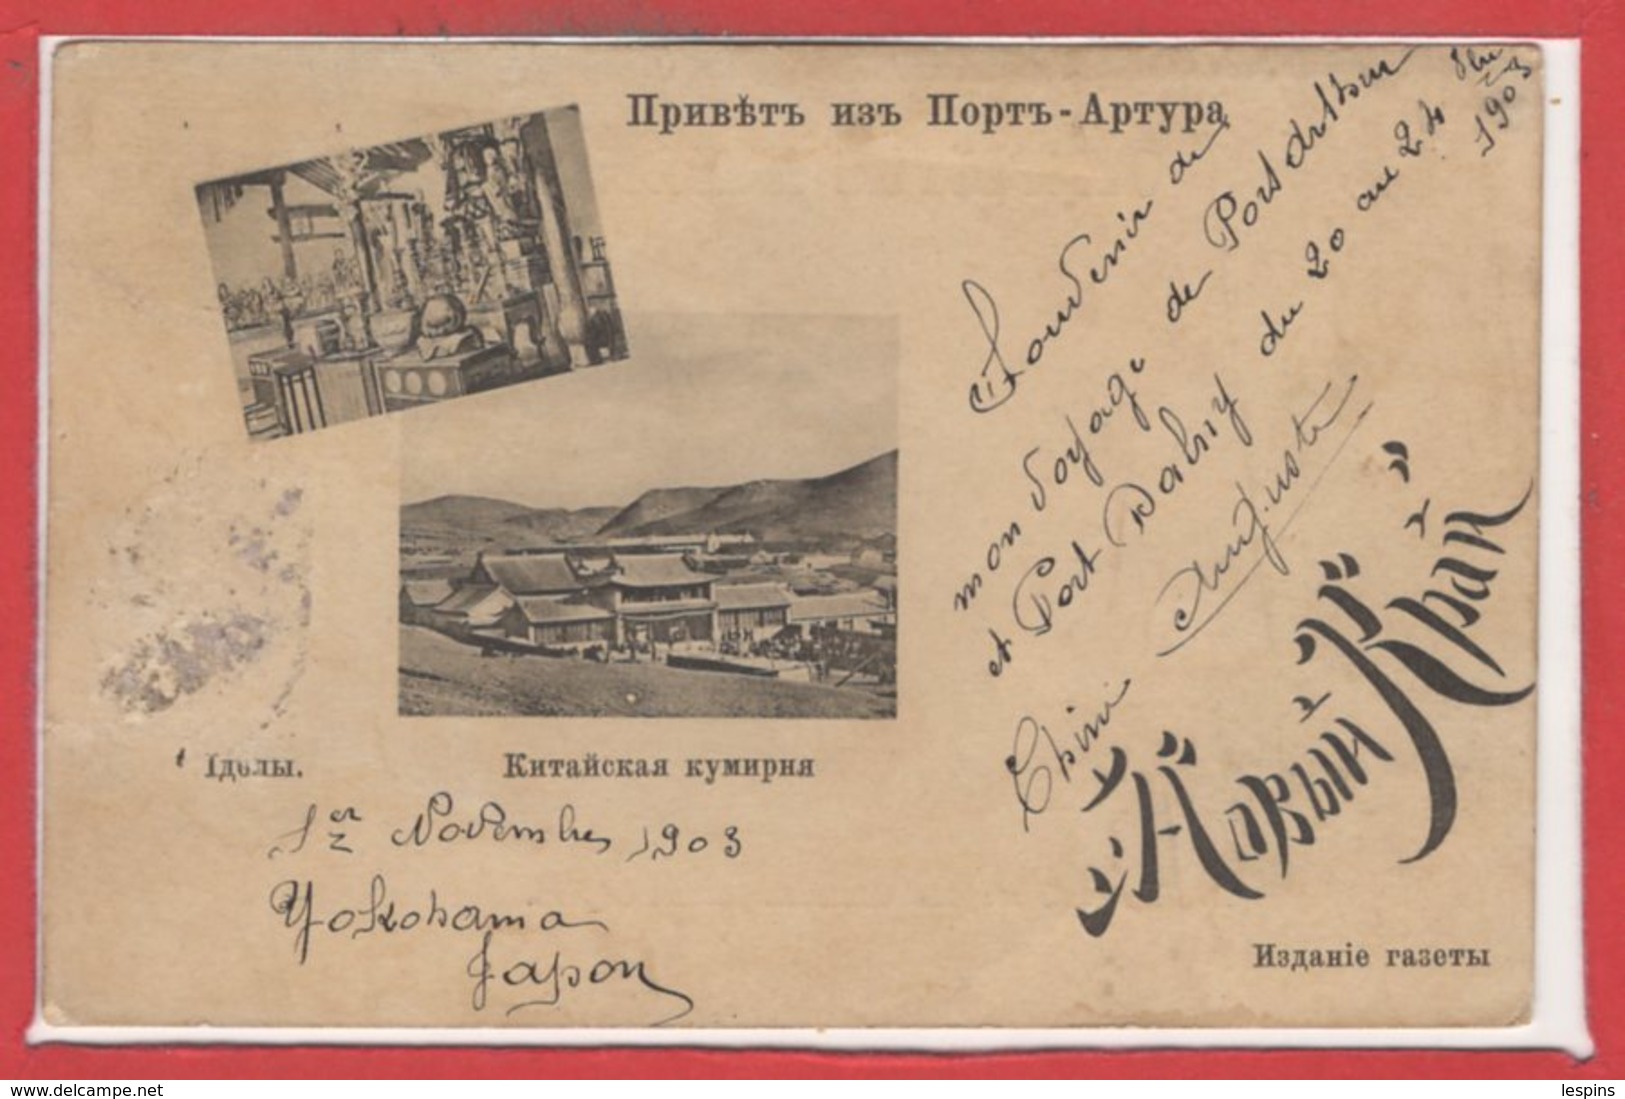 Привѣтъ изъ Портъ-Артура
Souvenir de
mon voyage de Port Arthur
et Port Dalny du 20 au 24 8bre
1903
Auguste
Chine
Новый Край
Изданіе газеты
Ідолы.
Китайская кумирня
1er Novembre 1903
Yokohama
Japon
www.delcampe.net
lespins